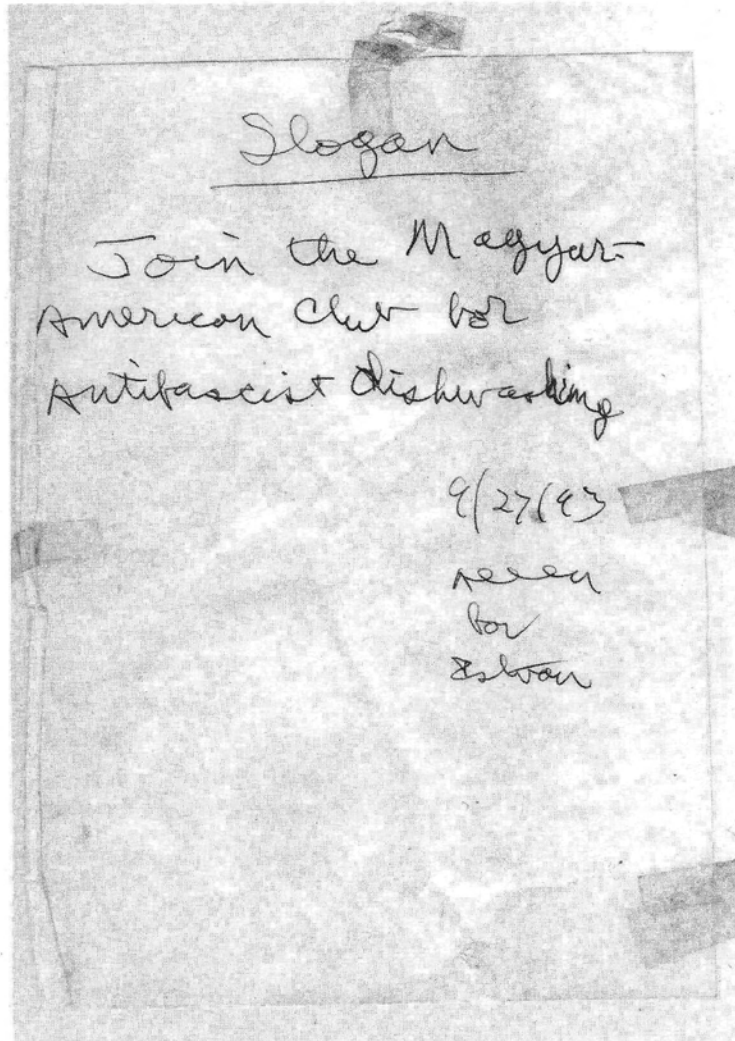 Slogan
Join the Magyar-
American Club for
Antifascist dishwashing
9/27/93
Allen
for
Istvan